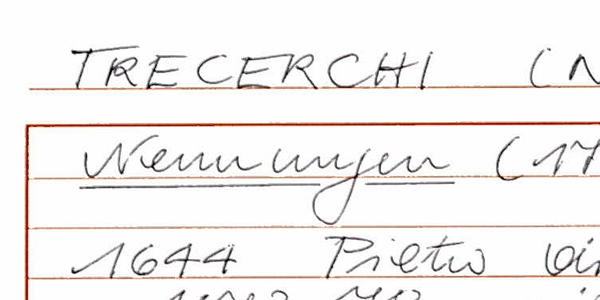 TRECERCHI (N
Nennungen (17
1644 Pietro